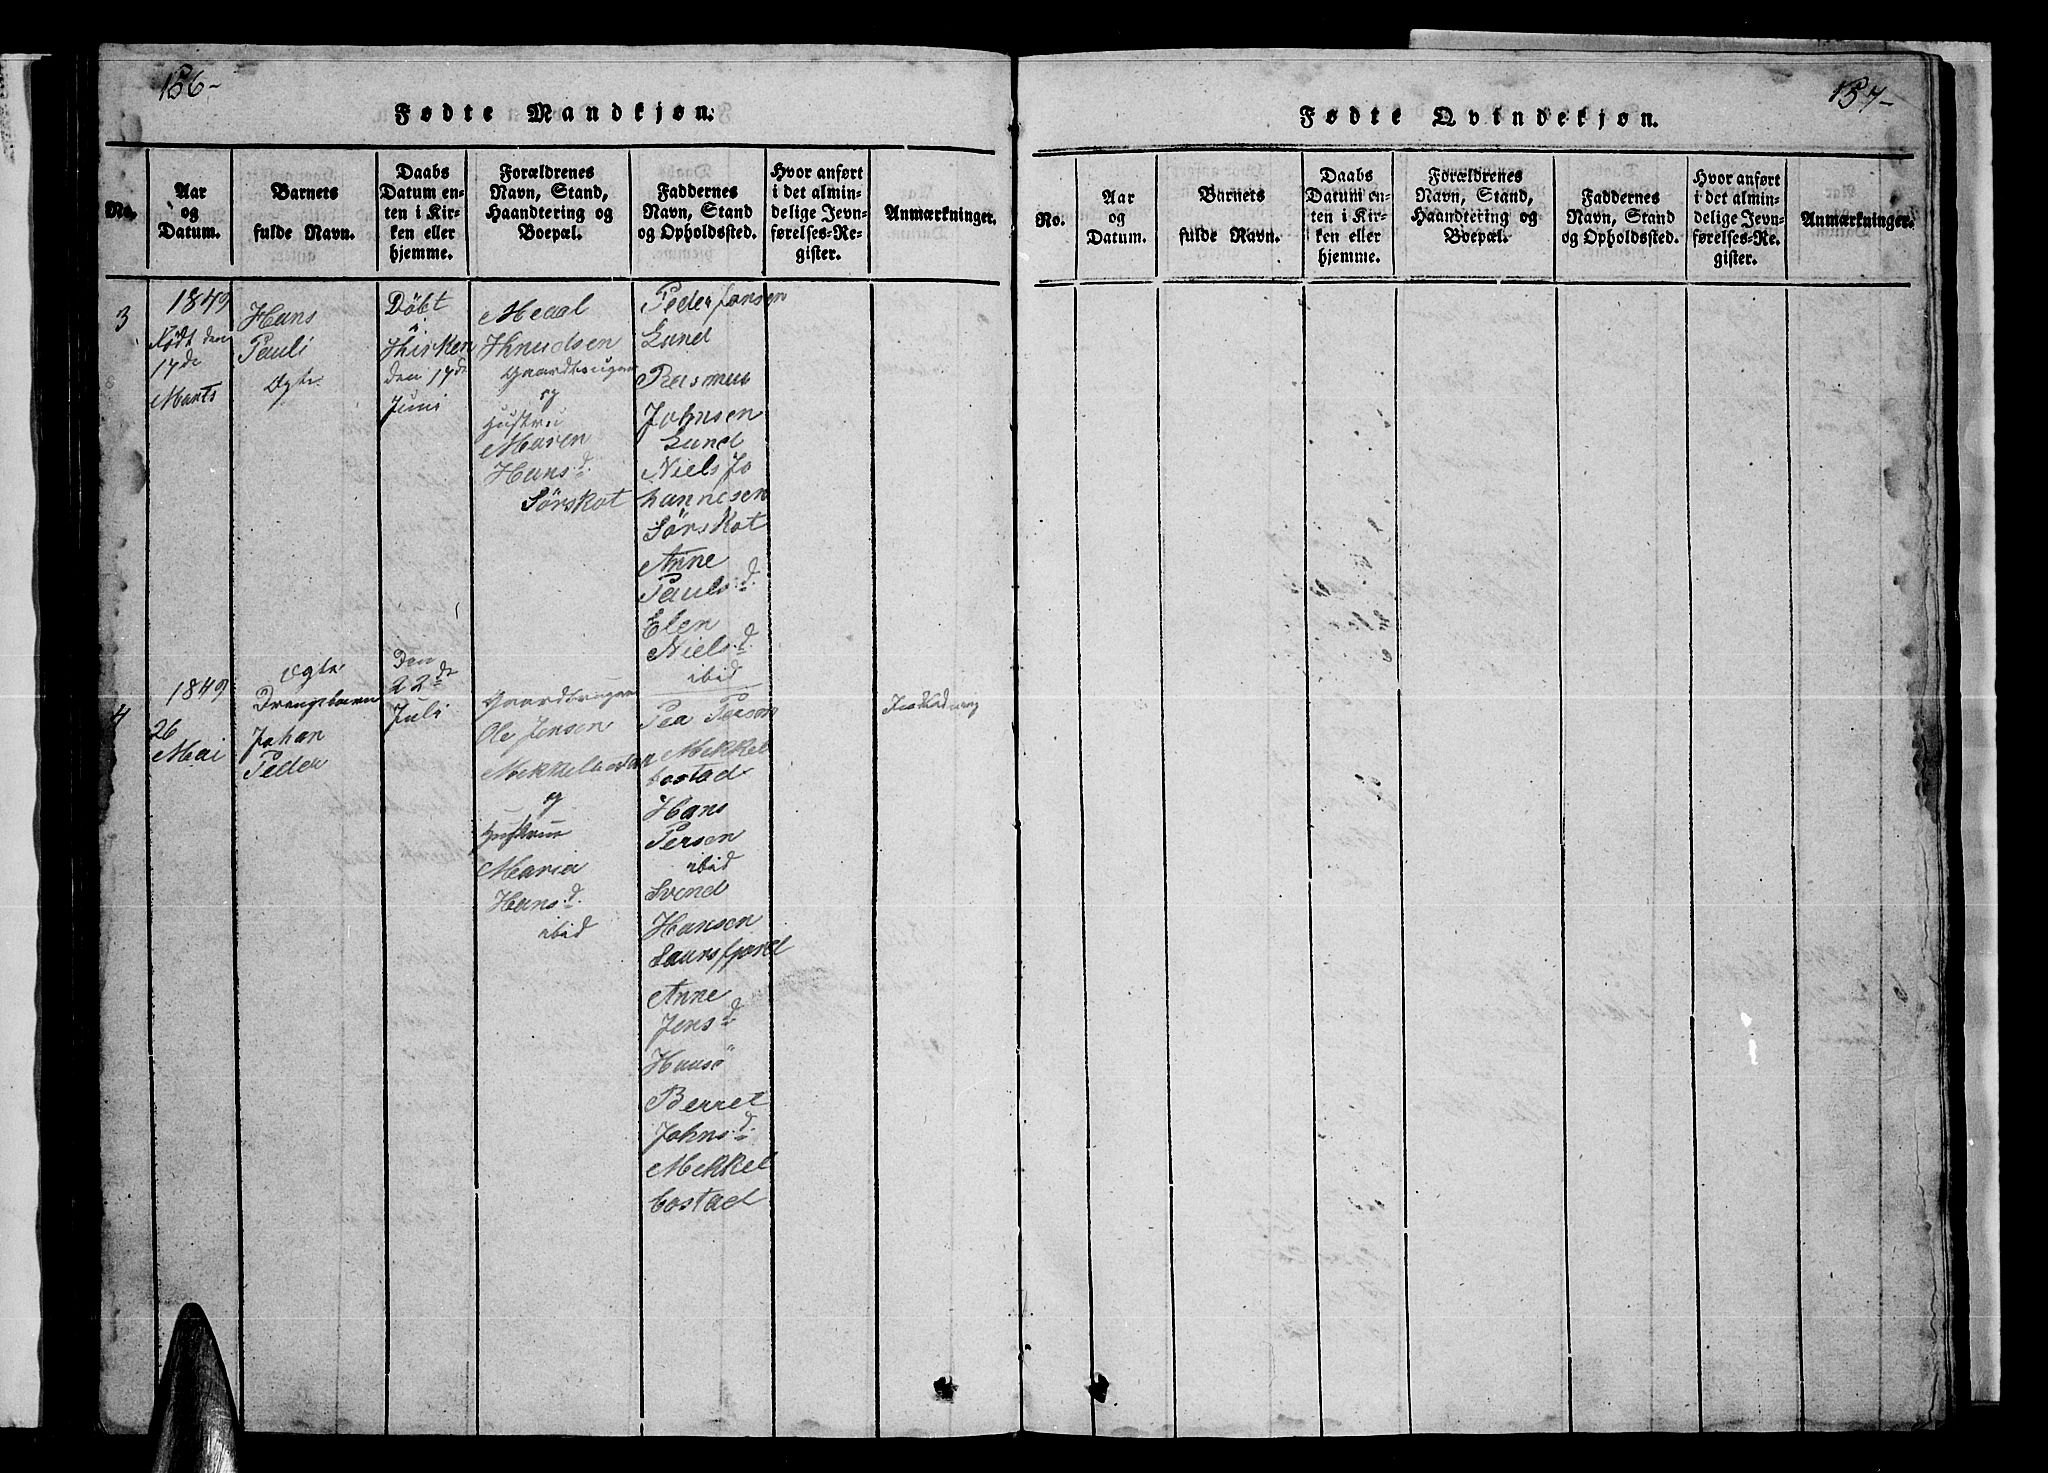 156-
Fødte Mandkjøn.
No.
Aar
og
Datum.
Barnets
fulde Navn.
Daabs
Datum en-
ten i Kir-
ken eller
hjemme.
Forældrenes
Navn, Stand,
Haandtering og
Boepæl.
Faddernes
Navn, Stand
og Opholdssted.
Hvor anført
i det almin-
delige Jevn-
førelses-Re-
gister.
Anmærkninger.
3
1849
Født den
17de
Marts
Hans
Pauli
Ægte
Döbt
i Kirken
den 17de
Juni
Knudsen
Gaardbruger
og
Hustru
Maren
Hansd.
Sörskot
Peder Jansen
Lund
Rasmus
Johnsen
Lund
Niels Jo
hannesen
Sörskot
Anne
Paulsd.
Elen
Nielsd.
ibid
4
1849
26
Mai
Ægte
Drengebarn
Johan
Peder
Den
22de
Juli
Gaardbruger
Ole Jensen
og
Hustrue
Maria
Hansd.
ibid
Per Person
Mekkel
bostad
Hans
Persen
ibid
Svend
Hansen
Laursfjord
Anne
Jensd.
Berret
Johnsd.
Mekkel
bostad
157-
Fødte Qvindekjøn.
No.
Aar
og
Datum.
Barnets
fulde Navn.
Daabs
Datum en-
ten i Kir-
ken eller
hjemme.
Forældrenes
Navn, Stand,
Haandtering og
Boepæl.
Faddernes
Navn, Stand
og Opholdssted.
Hvor anført
i det almin-
delige Jevn-
førelses-Re-
gister.
Anmærkninger.